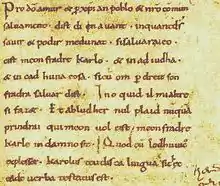 Pro dō amur & ꝑ xp̄ian poblo & nr̄o comun
saluament. dist di en auant. inquantdſ
sauir & podir medunat. sisaluaraieo.
cist meon fradre karlo. & in adiudha.
& in cad huna cosa. sicū om ꝑ dreit son
fradra saluar dist. Ino quid il mialtre
si faz&. Et abludher nul plaid nūquā
prindrai qui meon uol cist meon fradre
karle in damno sit. Quod cū lodhuuic
explesset. karolus teudisca lingua sic
eadē uerba testatus est.